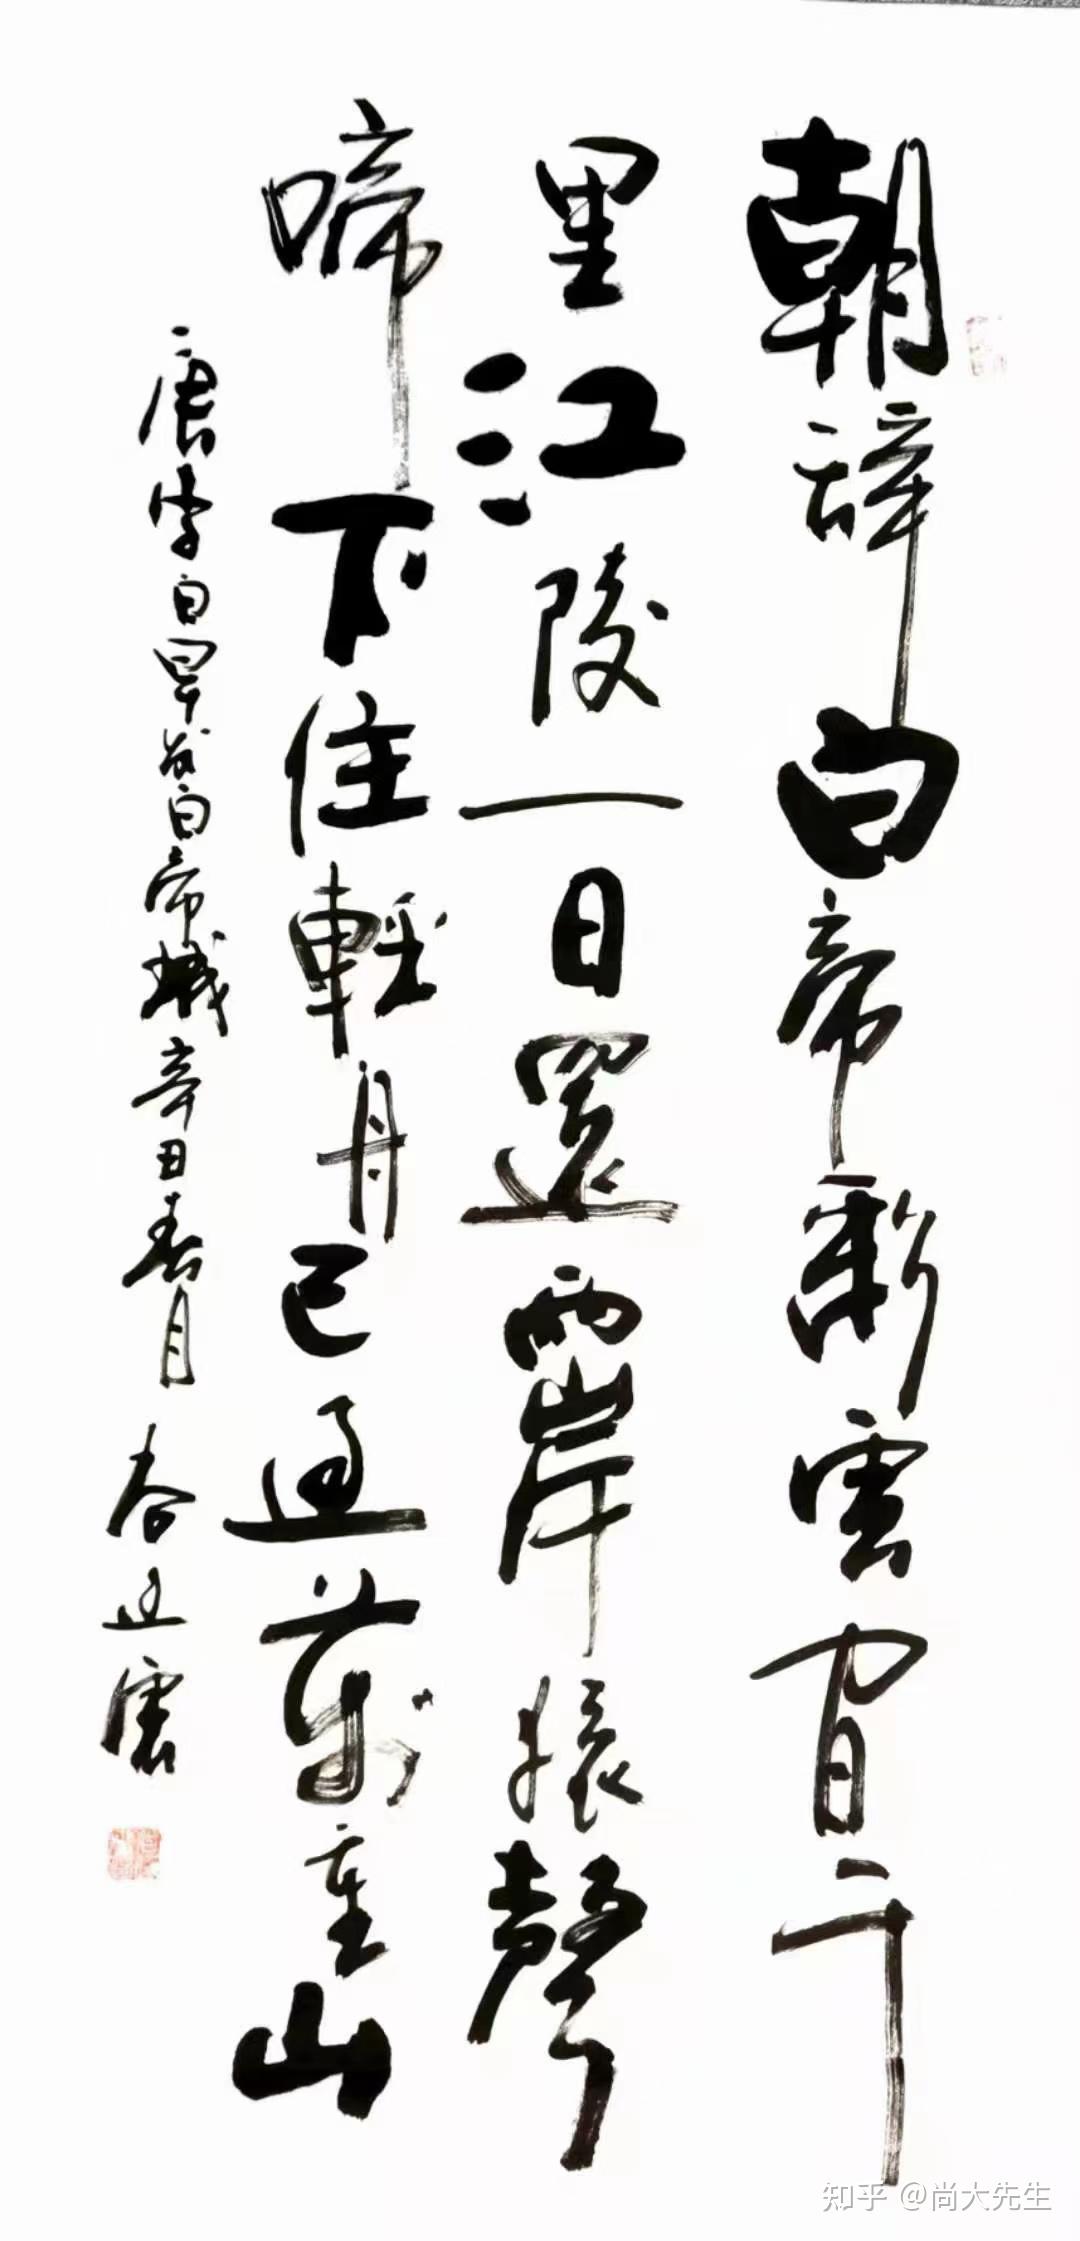 朝辞白帝彩雲間千
里江陵一日還兩岸猿聲
啼不住輕舟已過萬重山
唐李白早发白帝城辛丑春月
知乎 @尚大先生